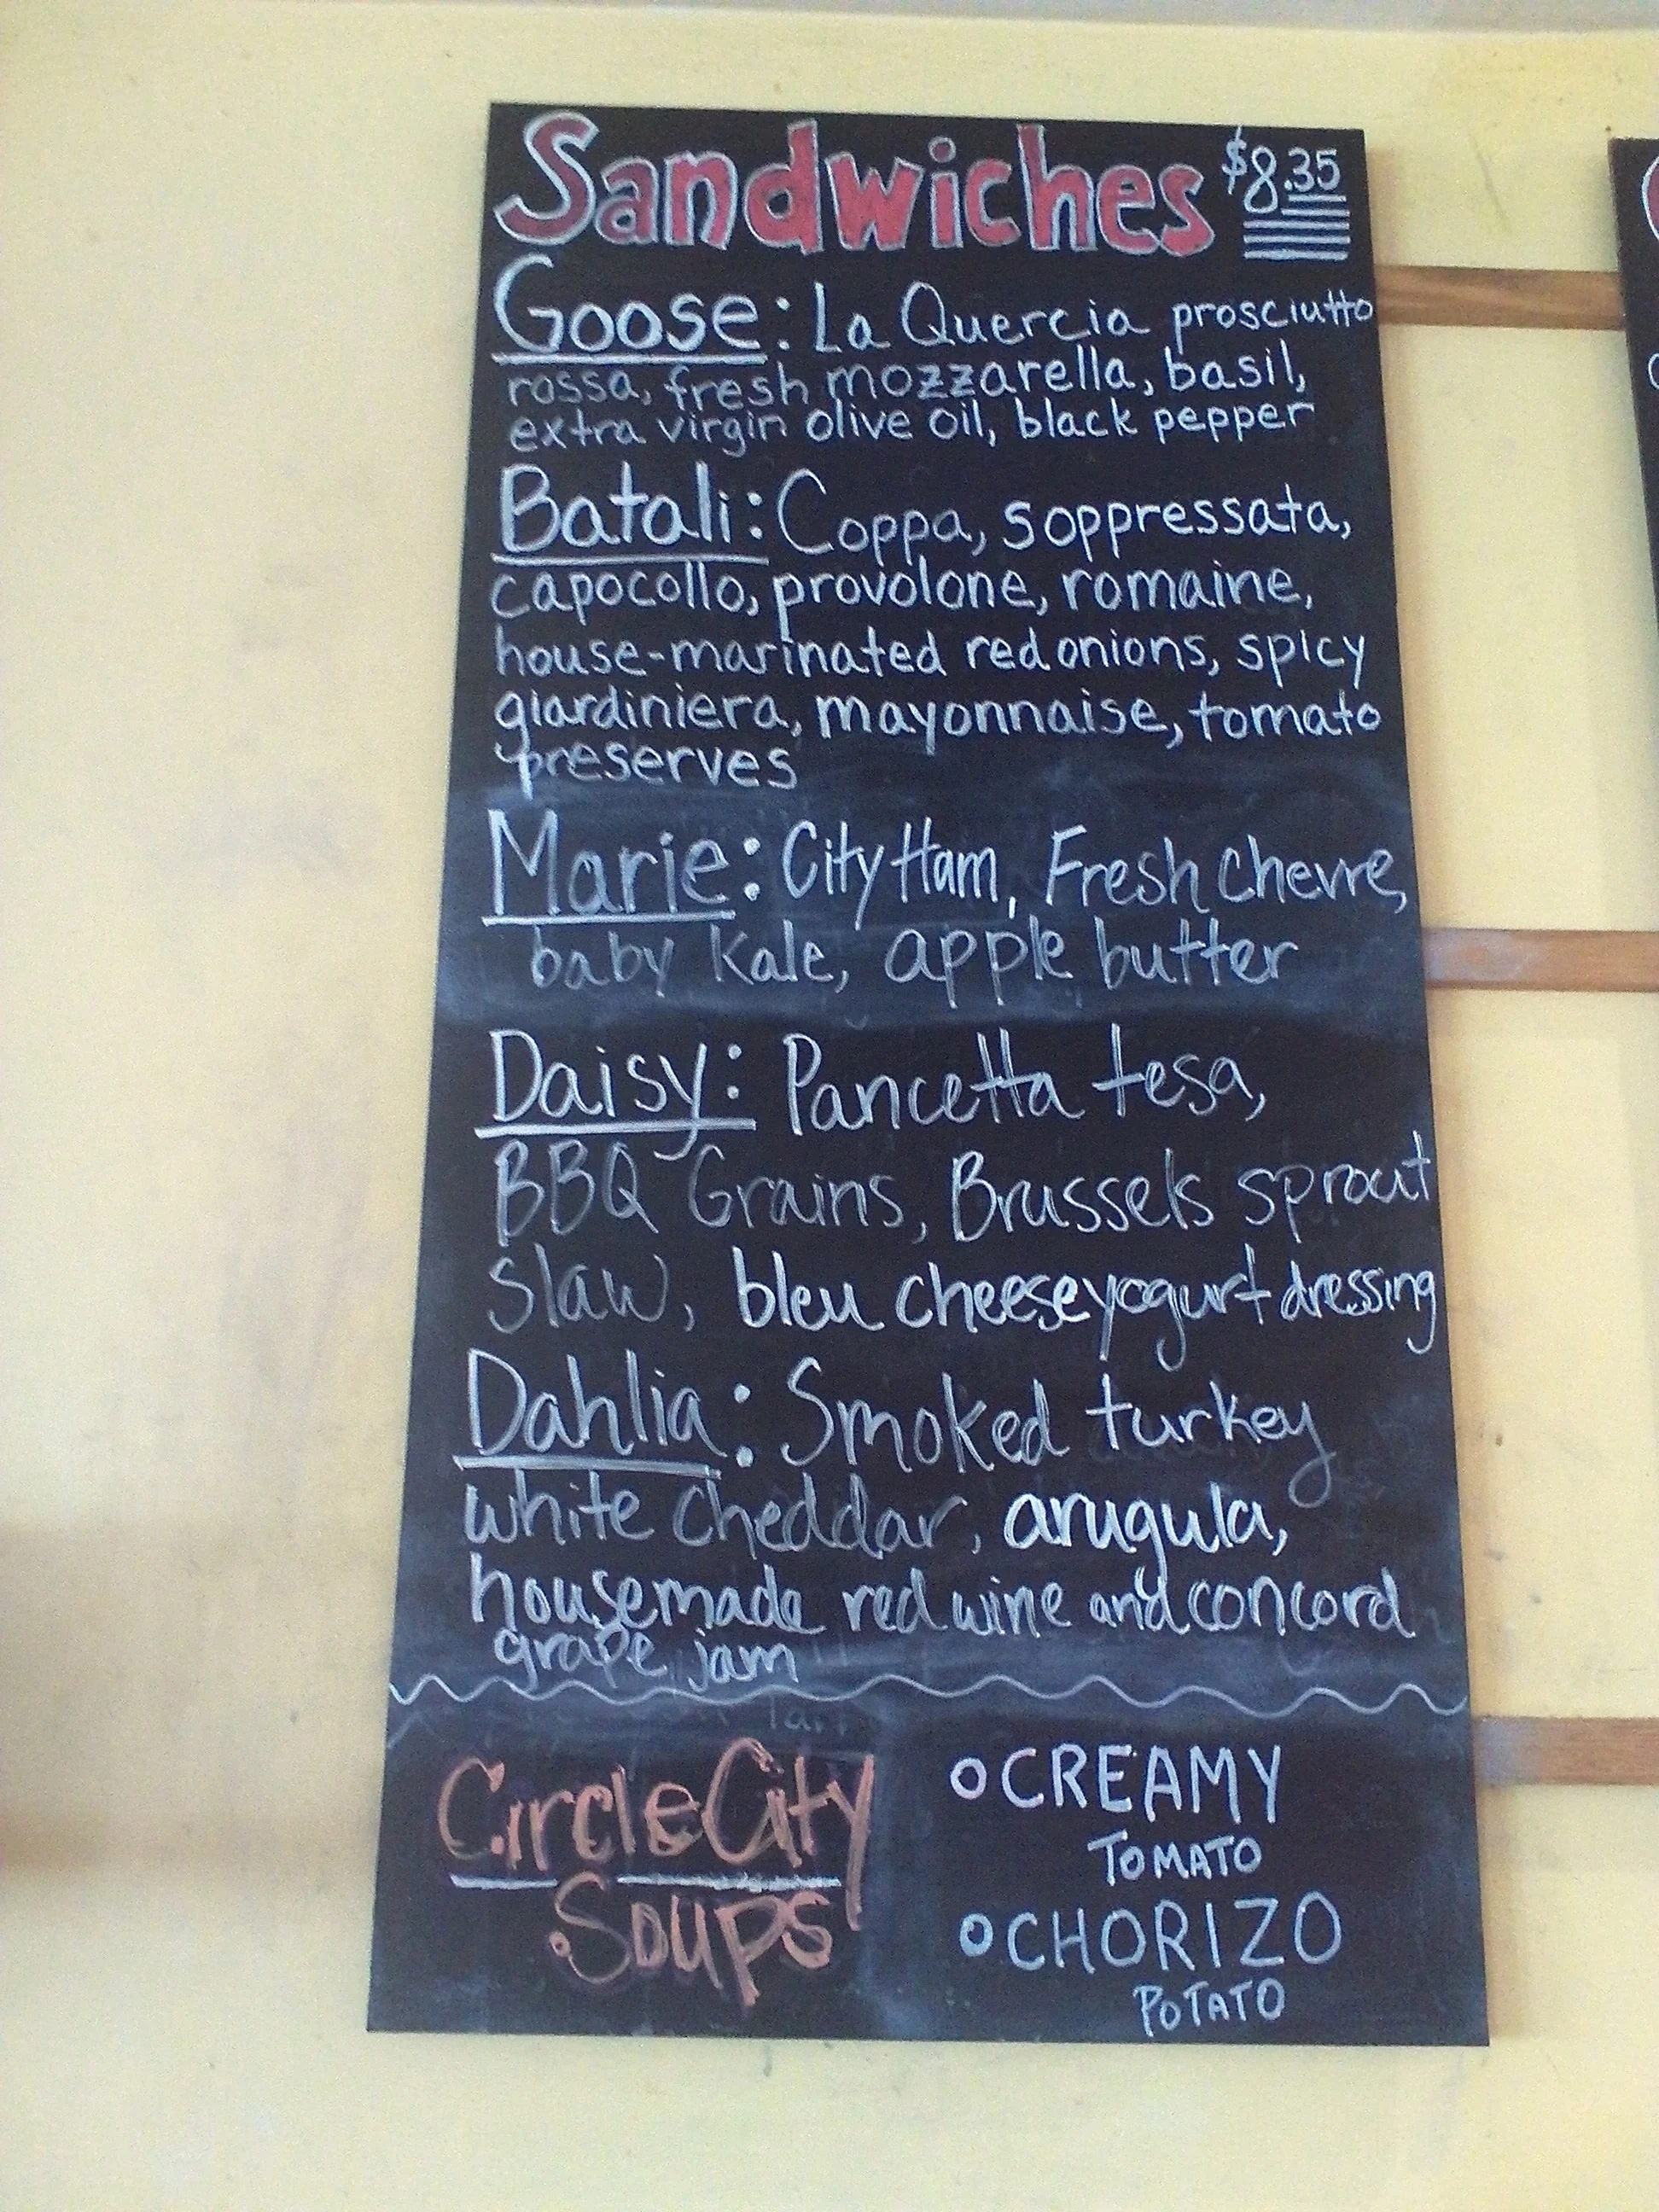 Sandwiches $8.35
Goose: La Quercia prosciutto
rossa, fresh mozzarella, basil,
extra virgin olive oil, black pepper
Batali: Coppa, soppressata,
capocollo, provolone, romaine,
house-marinated red onions, spicy
giardiniera, mayonnaise, tomato
preserves
Marie: City Ham, Fresh Chevre,
baby Kale, apple butter
Daisy: Pancetta tesa,
BBQ Grains, Brussels sprout
slaw, bleu cheese yogurt dressing
Dahlia: Smoked turkey
white cheddar, arugula,
housemade red wine and concord
grape jam
Circle City
Soups
o CREAMY
TOMATO
o CHORIZO
POTATO